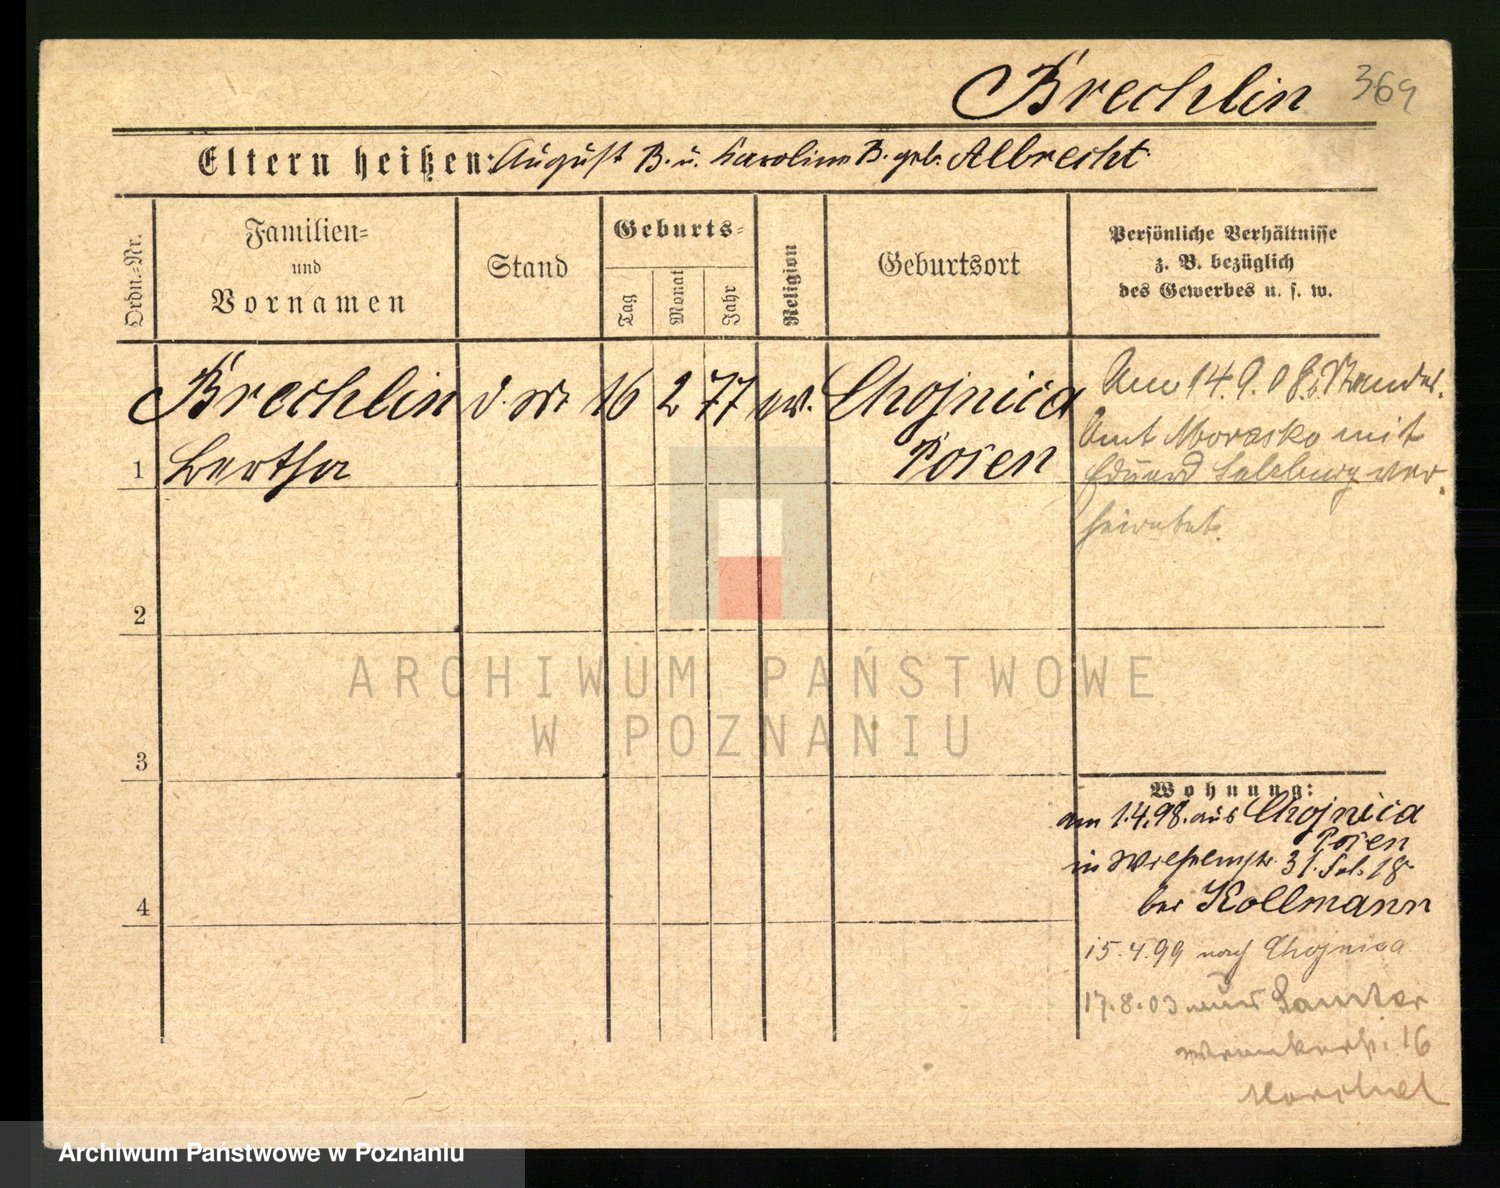 Brechlin 369
Eltern heißen: August B. u. Karoline B. geb. Albrecht
Ordn.=Nr.
Familien=
und
Vornamen
Stand
Geburts=
Tag
Monat
Jahr
Religion
Geburtsort
Persönliche Verhältnisse
z. B. bezüglich
des Gewerbes u. s. w.
Brechlin 16 2 77 ev. Chojnica
1 Bertha Posen
Am 14.9.08
Amt Morasko mit
Eduard Salzburg ver-
heiratet.
2
3
4
Wohnung:
am 1.4.98. aus Chojnica
Posen
in Wilhelmstr. 31.
bei Kollmann
15.4.99 nach Chojnica
17.8.03 aus Samter
16
ARCHIWUM PAŃSTWOWE
W POZNANIU
Archiwum Państwowe w Poznaniu